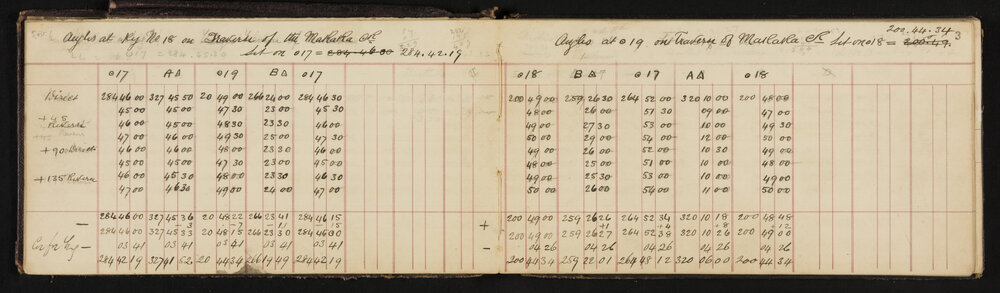 Angles at Kg No 18 on Traverse of the Mallaka St.
Set on o17 = 284-46-00 284.42.19
o17 A△ o19 B△ o17
Direct 284 46 00 327 45 50 20 49 00 266 24 00 284 46 30
45 00 45 00 47 30 23 00 45 30
+45 Reverse 46 00 45 00 48 30 23 30 46 00
47 00 46 00 49 30 25 00 47 30
+90 Direct 46 00 46 00 48 00 23 30 46 00
45 00 45 00 47 30 23 00 45 00
+135 Reverse 46 00 45 30 48 00 23 30 46 30
47 00 46 30 49 00 24 00 47 00
284 46 00 327 45 36 20 48 22 266 23 41 284 46 15
– -3 -7 -11 -15
284 46 00 327 45 33 20 48 15 266 23 30 284 46 00
03 41 03 41 03 41 03 41 03 41
284 42 19 327 41 52 20 44 34 266 19 49 284 42 19
200.44.34
3
Angles at o19 on Traverse of Mallaka St. Set on o18 =
o18 B△ o17 A△ o18
200 49 00 259 26 30 264 52 00 320 10 00 200 48 00
48 00 26 00 51 30 09 00 47 00
49 00 27 30 53 00 10 00 49 30
50 00 29 00 54 00 12 00 50 00
49 00 26 00 52 00 10 30 49 00
48 00 25 00 51 00 10 00 48 00
49 00 25 30 53 00 10 00 49 00
50 00 26 00 54 00 11 00 50 00
200 49 00 259 26 26 264 52 34 320 10 18 200 48 48
+ +1 +4 +8 +12
200 49 00 259 26 27 264 52 38 320 10 26 200 49 00
– 04 26 04 26 04 26 04 26 04 26
200 44 34 259 22 01 264 48 12 320 06 00 200 44 34